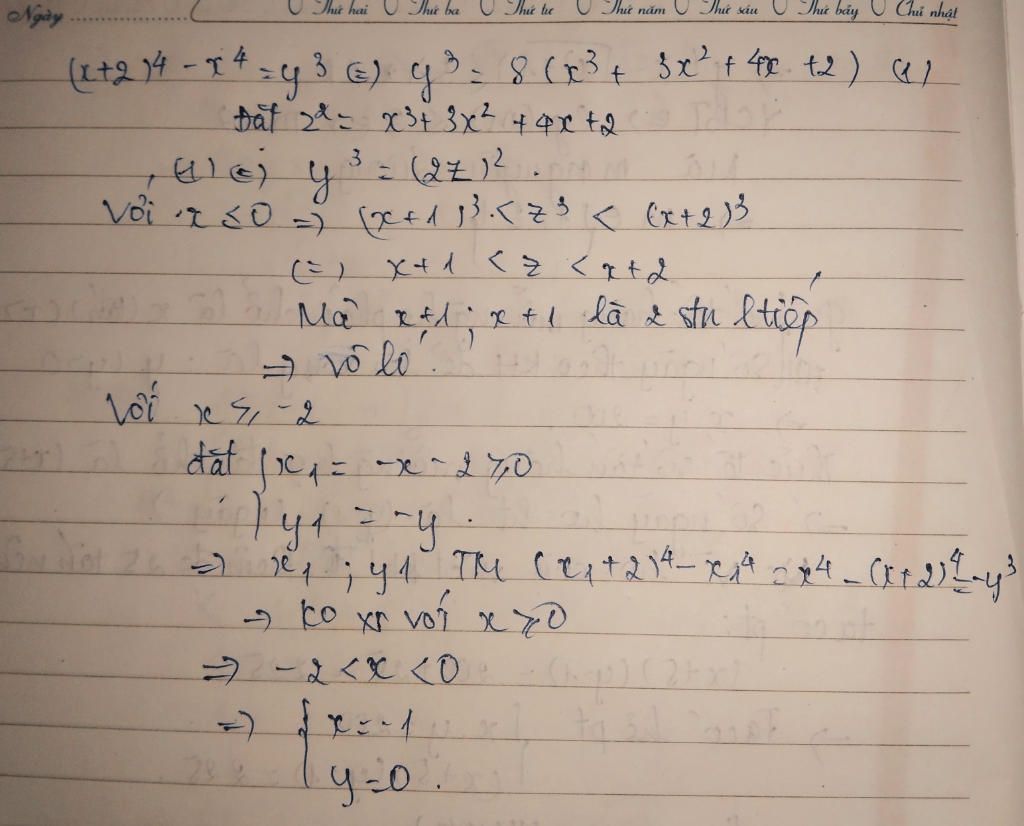 Ngày ........................ Thứ hai Thứ ba Thứ tư Thứ năm Thứ sáu Thứ bảy Chủ nhật
(x+2)⁴ - x⁴ = y³ (=) y³ = 8 (x³ + 3x² + 4x + 2) (1)
Đặt z² = x³ + 3x² + 4x + 2
(1) (=) y³ = (2z)².
Với x ≤ 0 => (x+1)³ < z³ < (x+2)³
(=) x+1 < z < x+2
Mà x+1 ; x+1 là 2 stn ltiếp
=> vô ló.
Với x ≤ -2
đặt { x₁ = -x - 2 ≥ 0
y₁ = -y.
=> x₁ ; y₁ TM (x₁+2)⁴ - x₁⁴ = x⁴ - (x+2)⁴ = -y³
-> Ko xr với x ≥ 0
=> -2 < x < 0
=> { x = -1
y = 0.